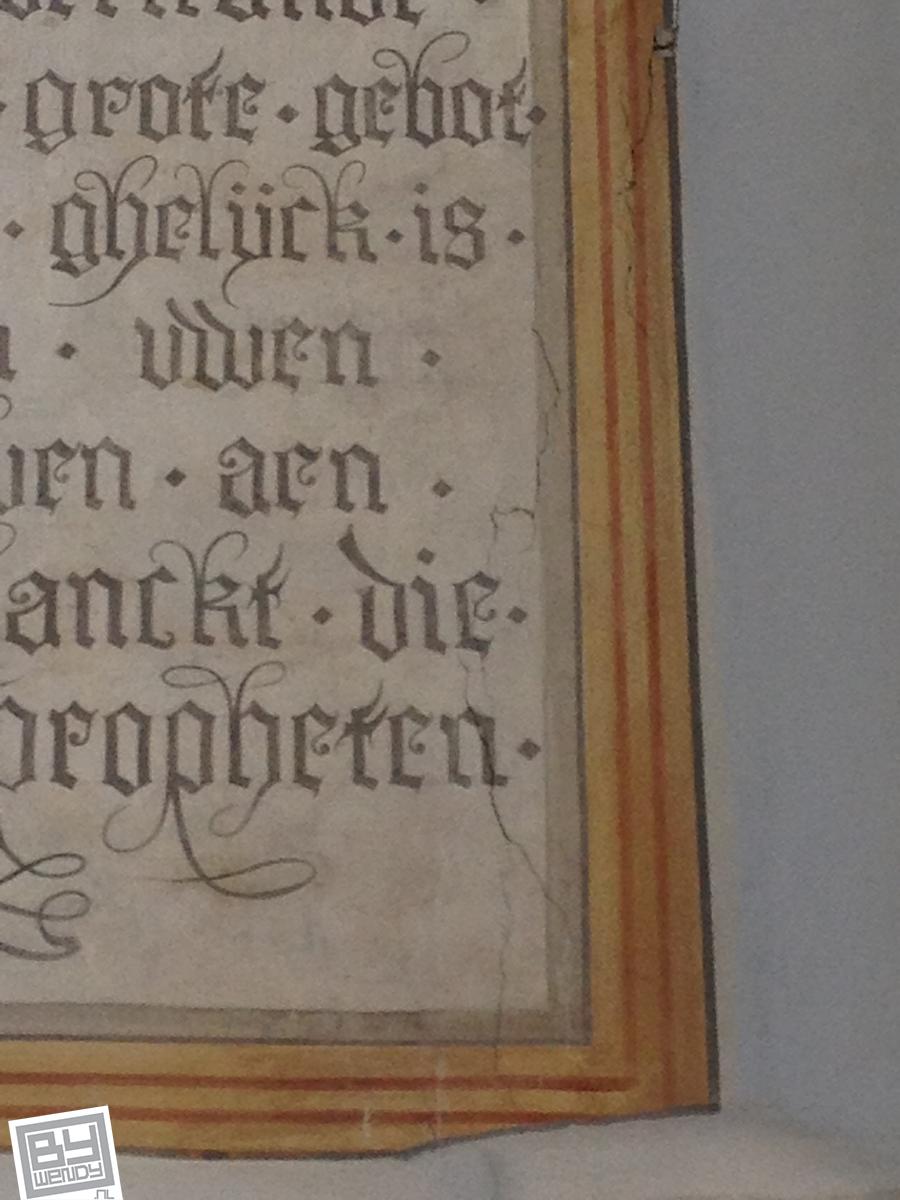 · grote · gebot ·
· ghelÿck · is ·
· vwen ·
ven · aen ·
anckt · die ·
propheten ·
BY
WENDY